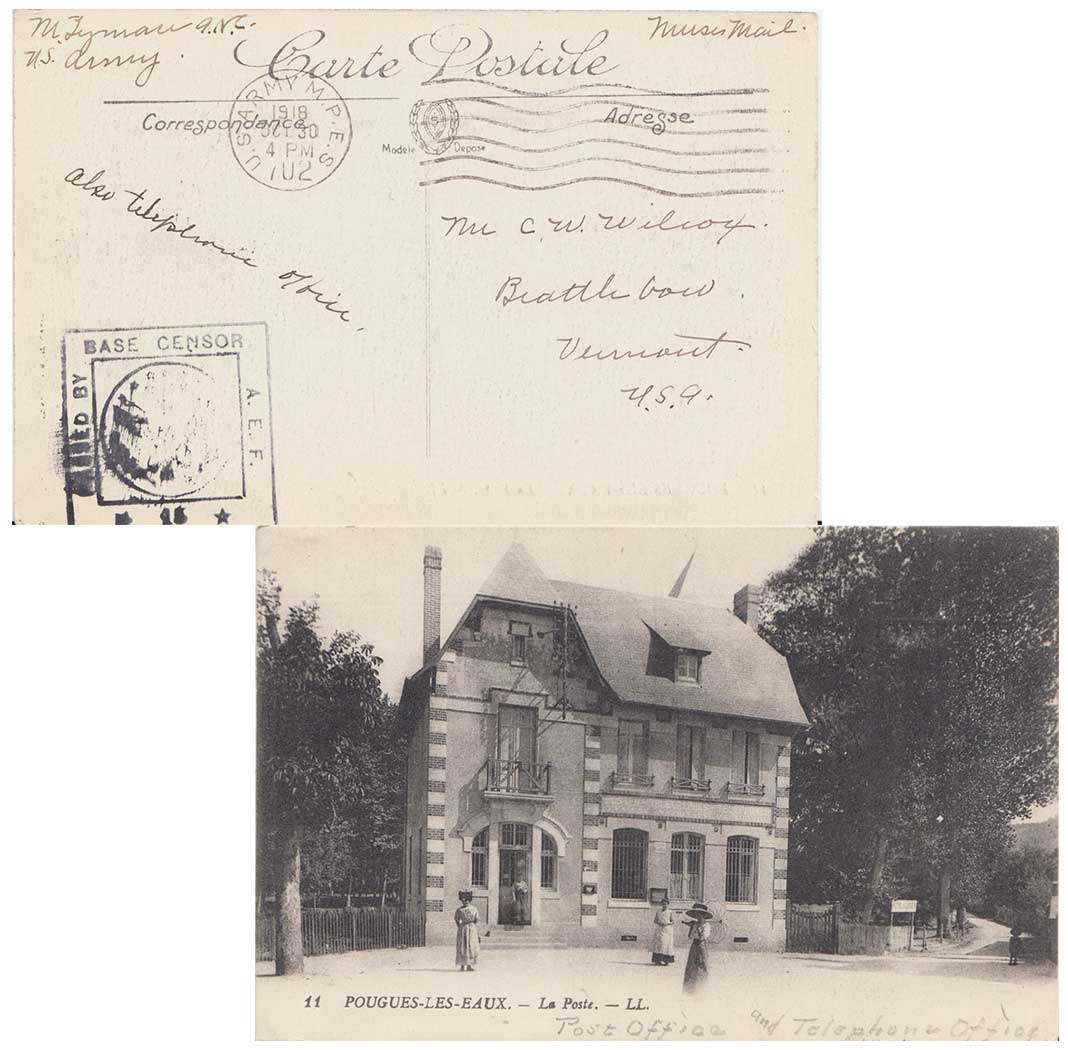 M. Lyman A.N.C.
U.S. Army.
Nurses Mail.
Carte Postale
Correspondance
Adresse
Modèle Déposé
U.S. ARMY M.P.E.S.
1918
OCT 30
4 PM
702
also telephone office.
Mr C. W. Wilcox.
Brattleboro.
Vermont.
U.S.A.
BASE CENSOR
A. E. F.
BY
11 POUGUES-LES-EAUX. — La Poste. — LL.
Post Office and Telephone Office